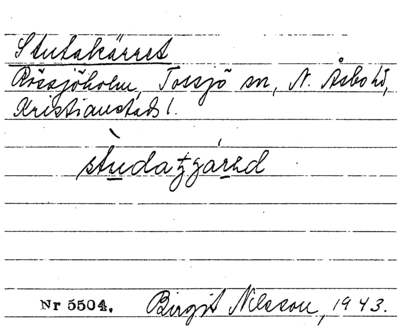 Stutakärret
Rössjöholm, Tossjö sn, N. Åsbo hd,
Kristianstads l.
stùdatzgárəd
Nr 5504. Birgit Nilsson, 1943.